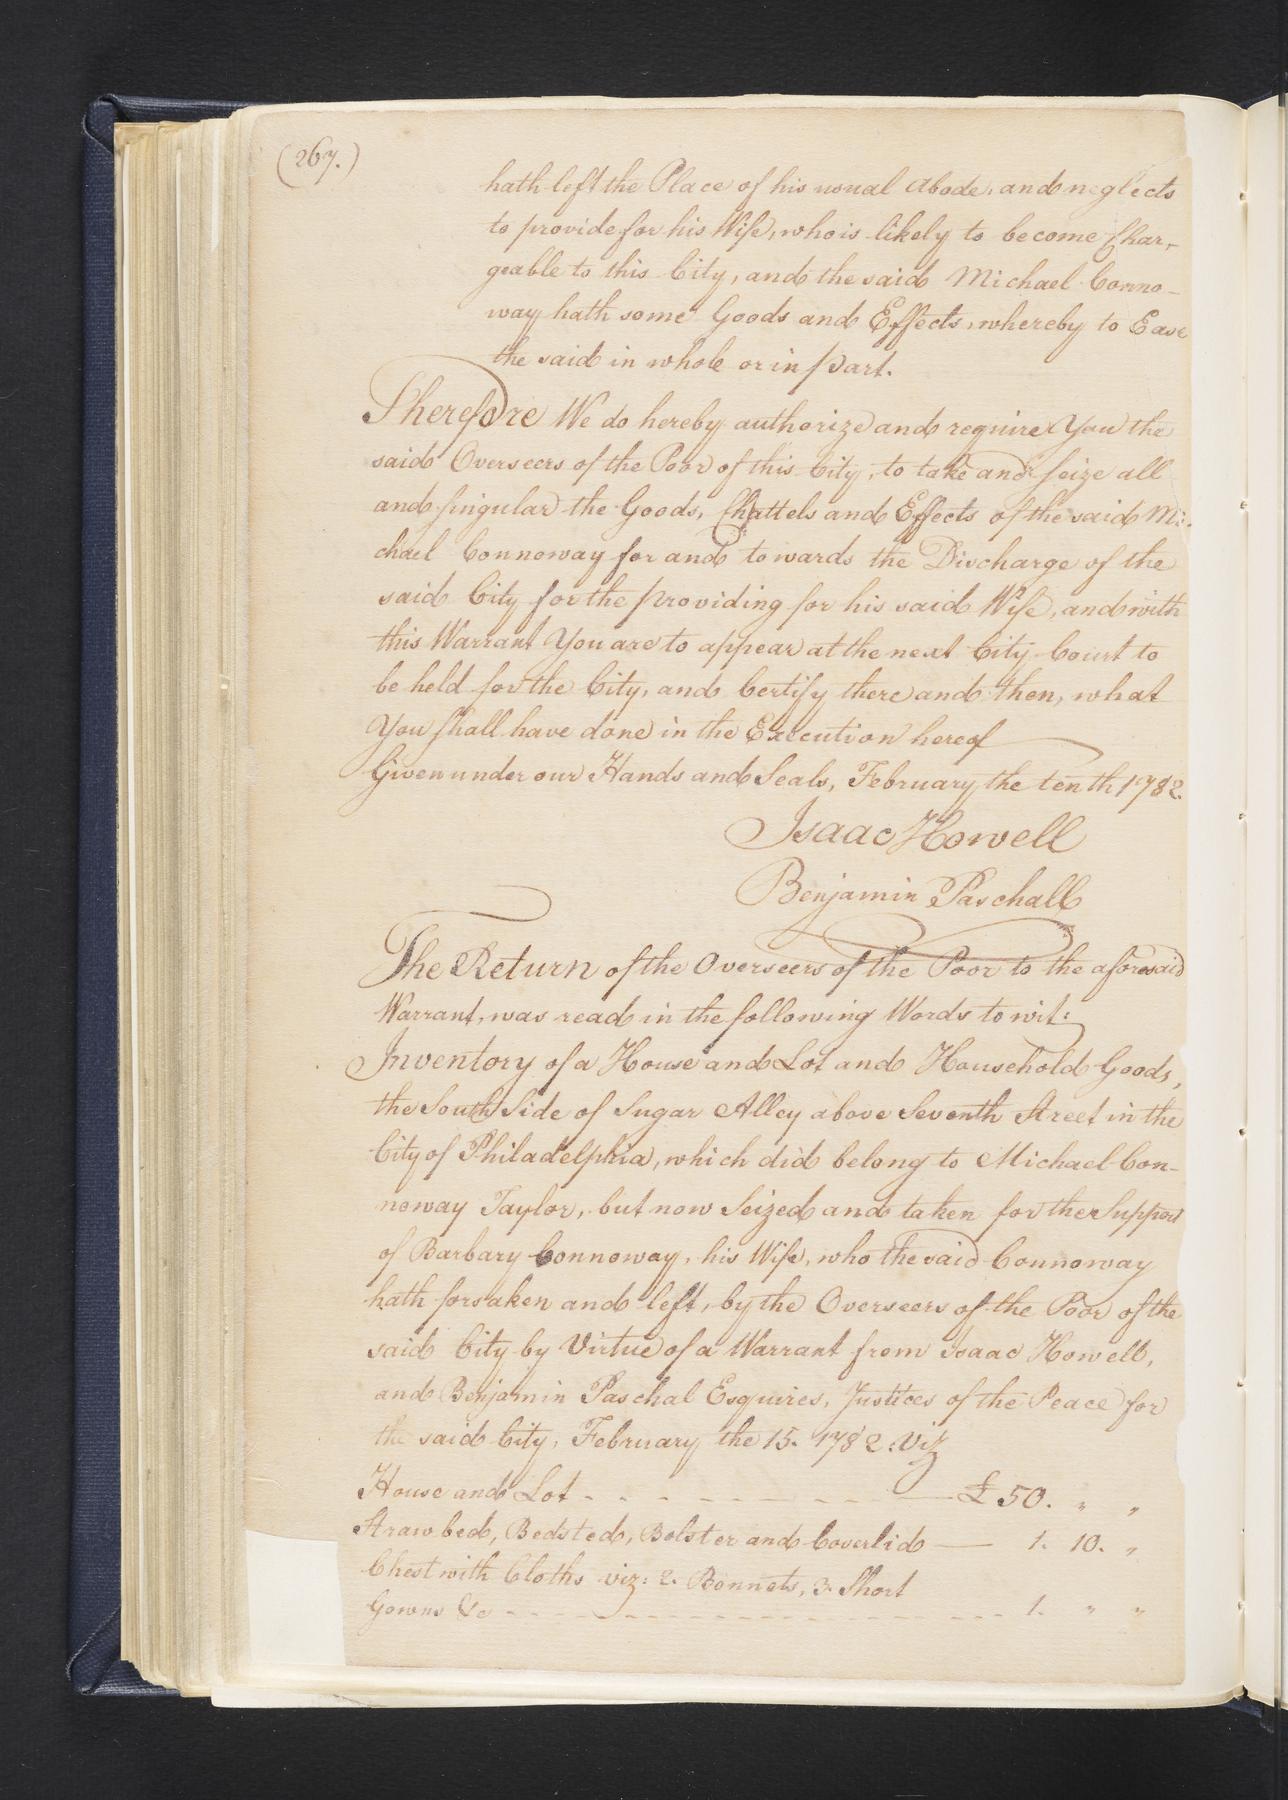 (267.)
hath left the Place of his usual Abode, and neglects
to provide for his Wife, who is likely to become Char,-
geable to this City, and the said Michael Conno-
way hath some Goods and Effects, whereby to Ease
the said in whole or in part.
Therefore We do hereby authorize and require You the
said Overseers of the Poor of this City, to take and seize all
and singular the Goods, Chattels and Effects of the said Mi-
chael Connoway for and towards the Discharge of the
said City for the providing for his said Wife, and with
this Warrant You are to appear at the next City Court to
be held for the City, and Certify there and then, what
You shall have done in the Execution hereof
Given under our Hands and Seals, February the tenth 1782.
Isaac Howell
Benjamin Paschall
The Return of the Overseers of the Poor to the aforesaid
Warrant, was read in the following Words to wit:
Inventory of a House and Lot and Household Goods,
the South Side of Sugar Alley above Seventh Street in the
City of Philadelphia, which did belong to Michael Con-
noway Taylor, but now Seized and taken for the Support
of Barbary Connoway, his Wife, who the said Connoway
hath forsaken and left, by the Overseers of the Poor of the
said City by Virtue of a Warrant from Isaac Howell,
and Benjamin Paschal Esquires, Justices of the Peace for
the said City, February the 15. 1782. Viz
House and Lot - - - - - - - - - £ 50. " "
Straw bed, Bedsted, Bolster and Coverlid — 1. 10. "
Chest with Cloths viz: 2. Bonnets, 3. Short
Gowns &c - - - - - - - - - - - - 1. " "